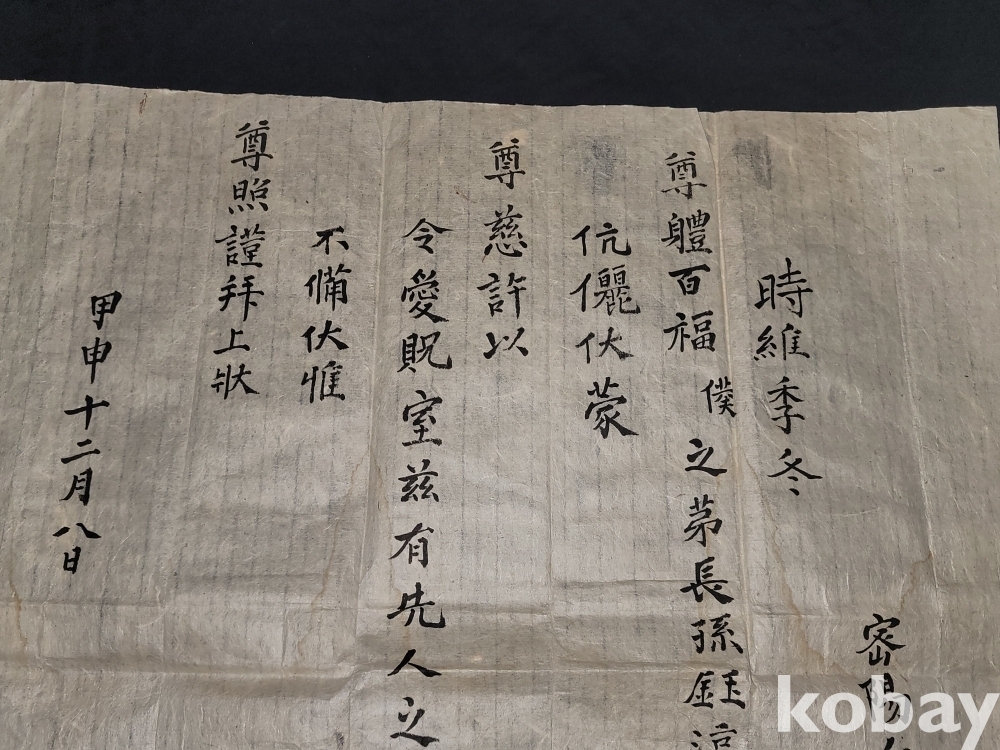 密陽
時維季冬
尊軆百福 僕之苐長孫鈺
伉儷伏蒙
尊慈許以
令愛貺室兹有先人之
不備伏惟
尊照謹拜上狀
甲申十二月八日
kobay